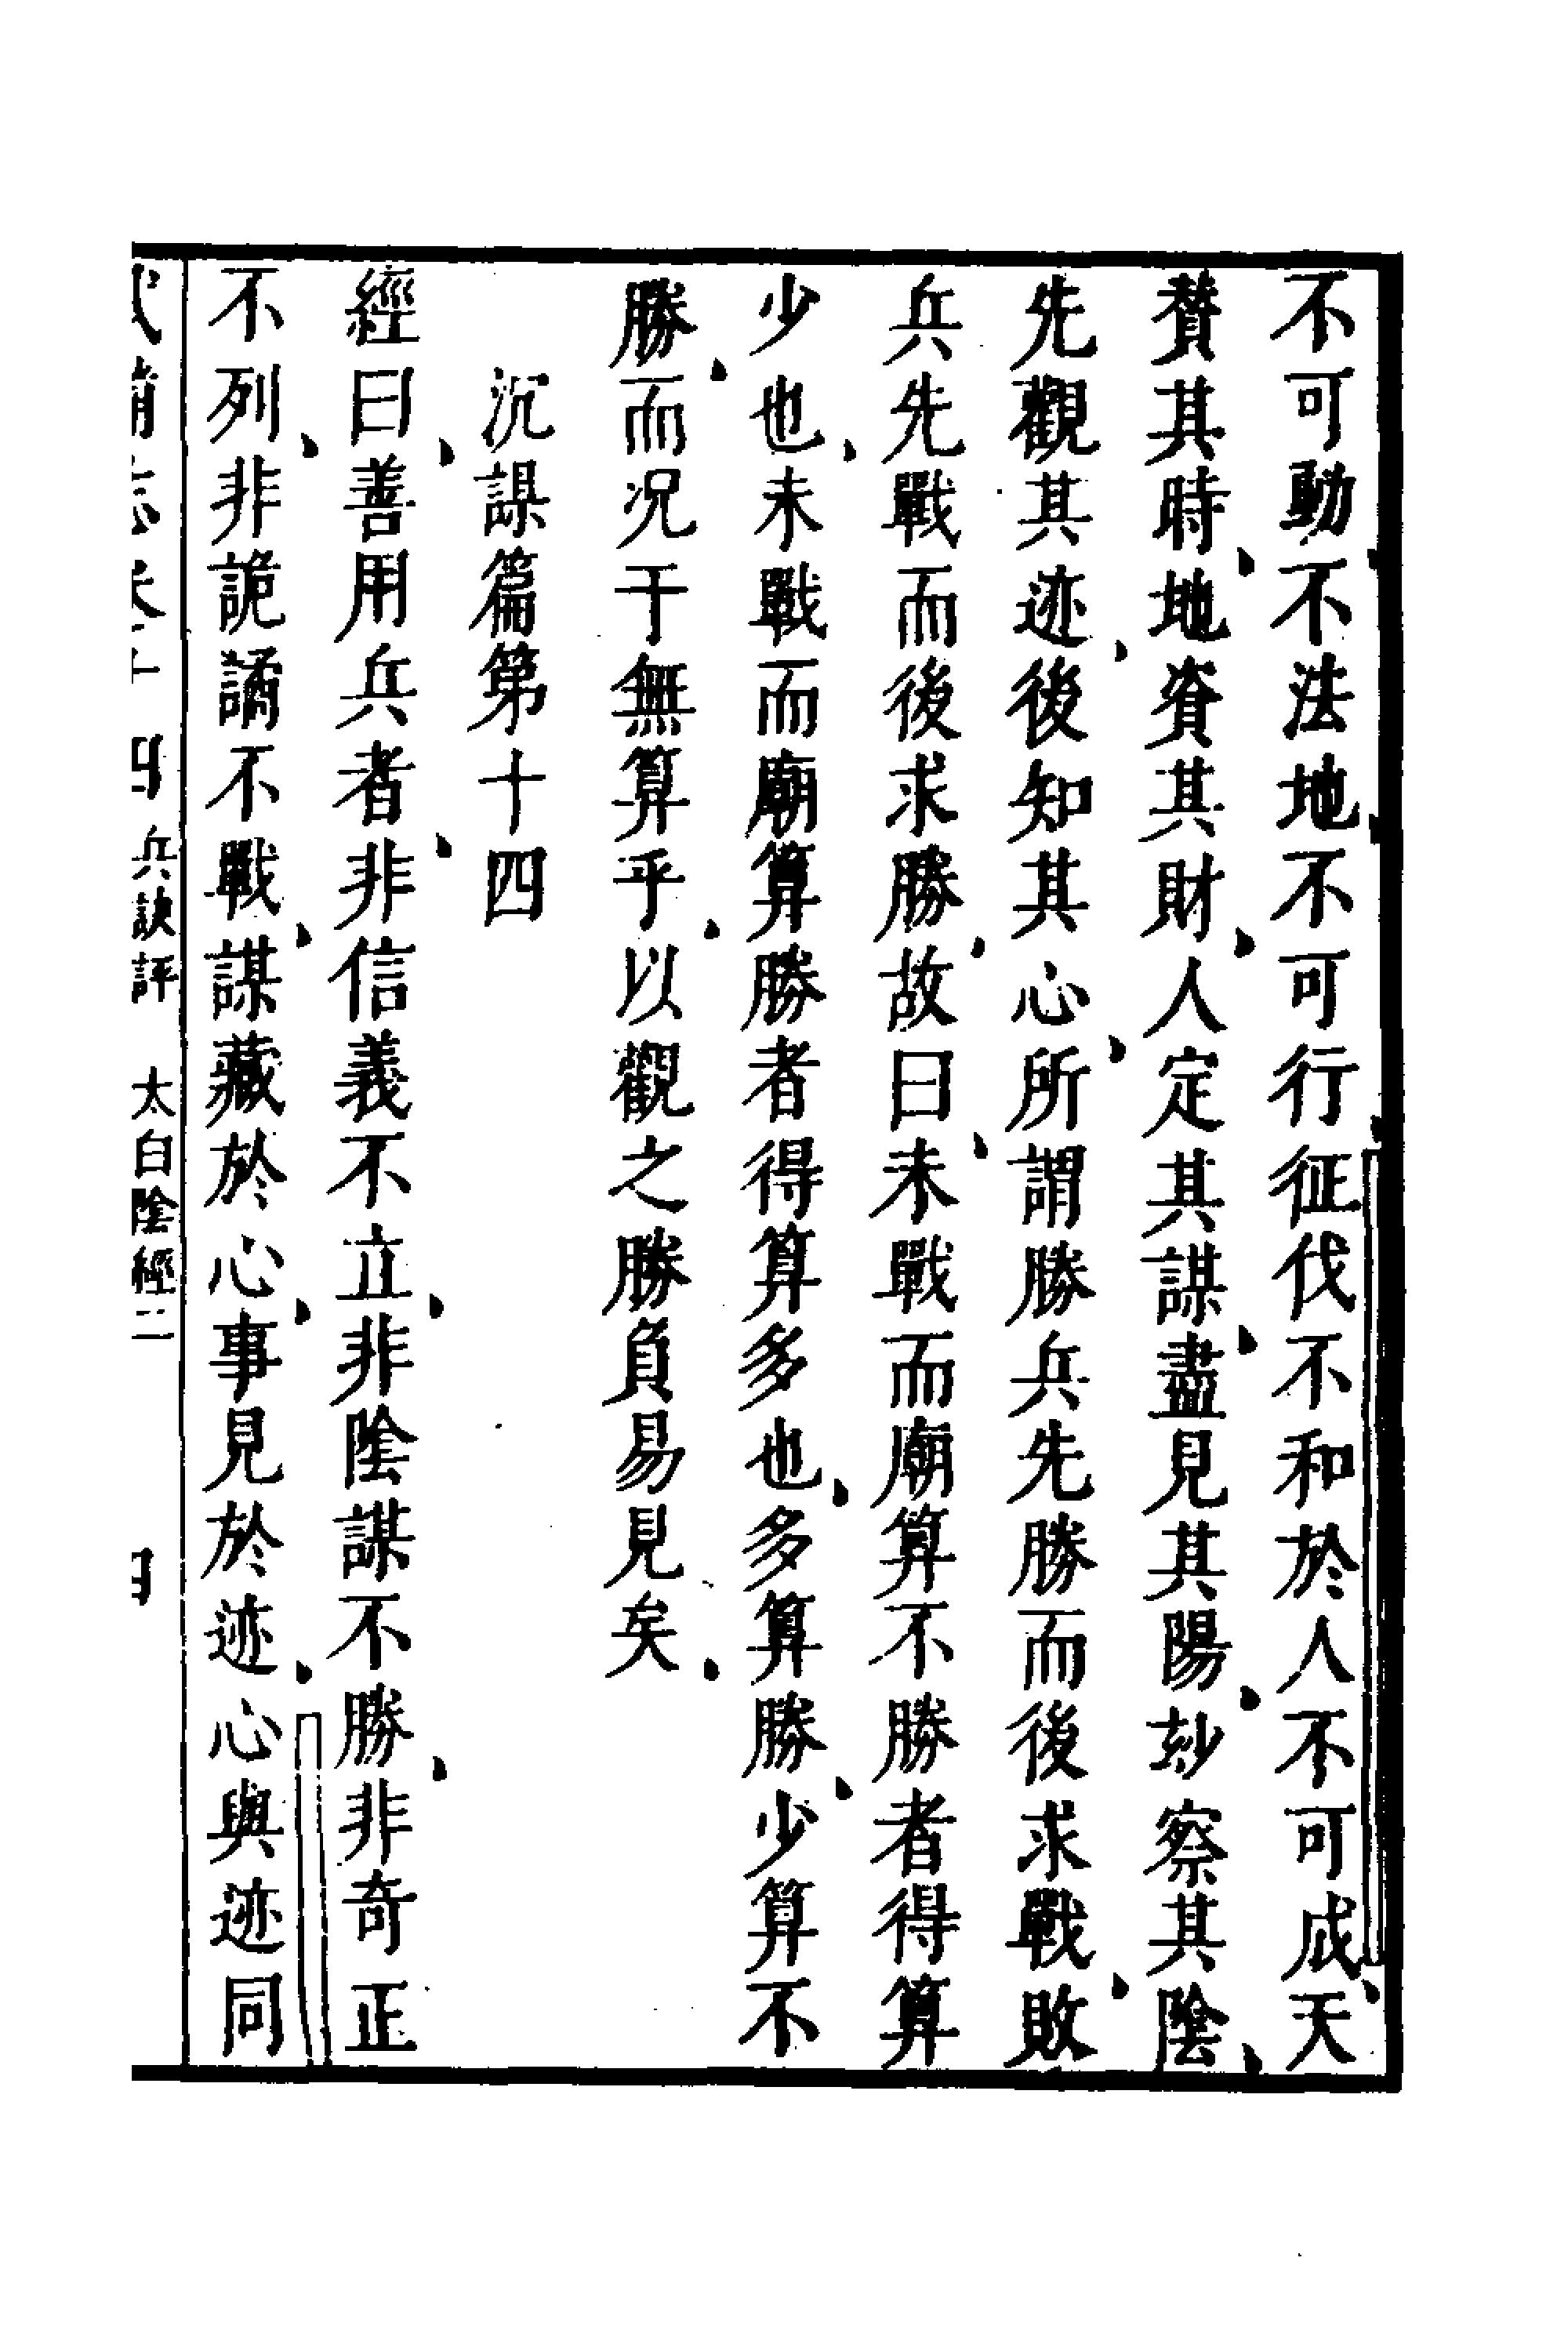 不可動不法地不可行征伐不和於人不可成天
賛其時地資其財人定其謀盡見其陽玅察其陰
先觀其迹後知其心所謂勝兵先勝而後求戰敗
兵先戰而後求勝故曰未戰而廟算不勝者得算
少也未戰而廟算勝者得算多也多算勝少算不
勝而况于無算乎以觀之勝負易見矣
沉謀篇第十四
經曰善用兵者非信義不立非陰謀不勝非奇正
不列非詭譎不戰謀藏於心事見於迹心與迹同
武備志卷十四 兵訣評 太白陰經二 四